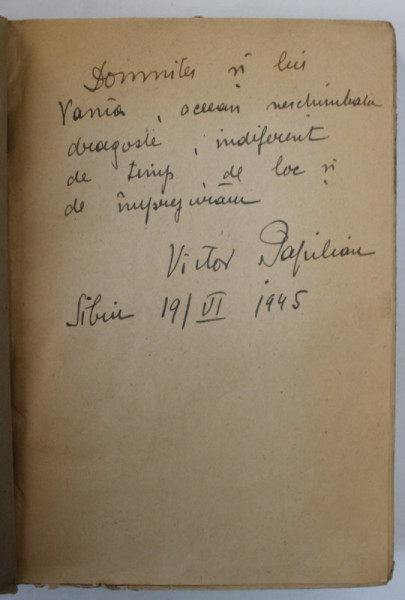 Domnitei și lui
Vania, aceeași neschimbata
dragoste, indiferent
de timp, de loc și
de împrejurări
Victor Papilian
Sibiu 19/VI 1945